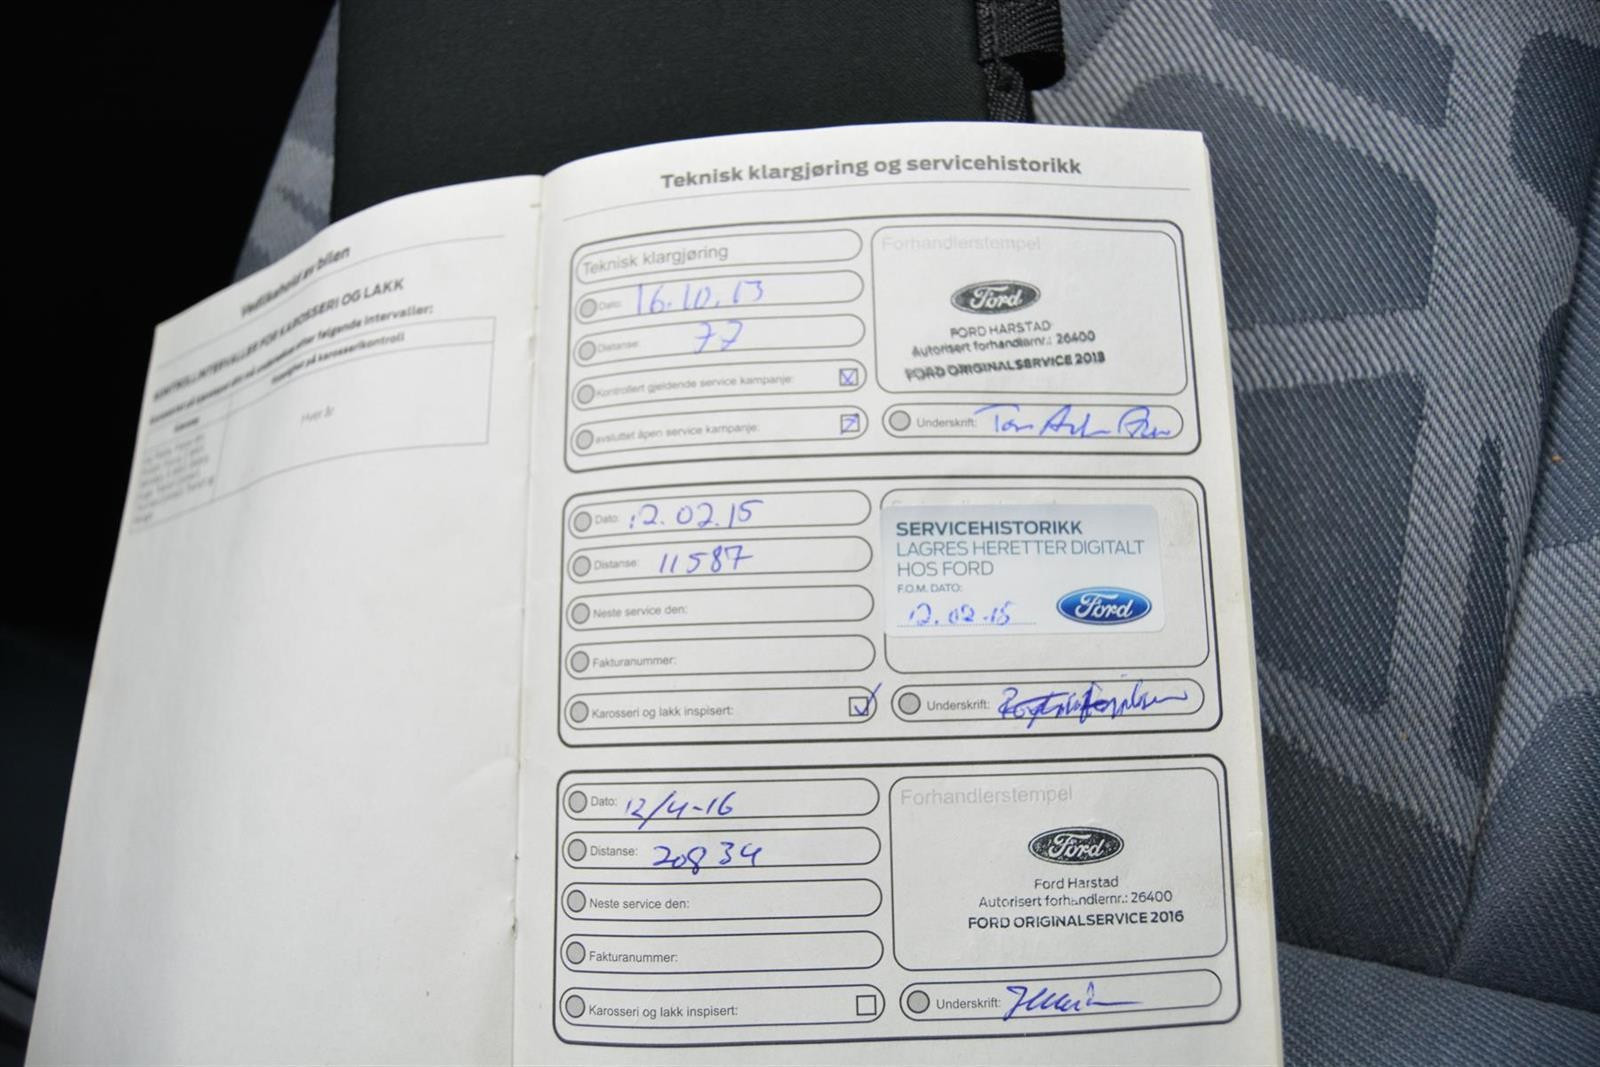 Vedlikehold av bilen
KONTROLLINTERVALLER FOR KAROSSERI OG LAKK
Hver år
Teknisk klargjøring og servicehistorikk
Teknisk klargjøring
Dato: 16.10.13
Distanse: 77
Kontrollert gjeldende service kampanje:
avsluttet åpen service kampanje:
Forhandlerstempel
Ford
FORD HARSTAD
Autorisert forhandlernr.: 26400
FORD ORIGINALSERVICE 2013
Underskrift:
Dato: 12.02.15
Distanse: 11587
Neste service den:
Fakturanummer:
Karosseri og lakk inspisert:
SERVICEHISTORIKK
LAGRES HERETTER DIGITALT
HOS FORD
F.O.M. DATO:
12.02.15
Ford
Underskrift:
Dato: 12/4-16
Distanse: 20834
Neste service den:
Fakturanummer:
Karosseri og lakk inspisert:
Forhandlerstempel
Ford
Ford Harstad
Autorisert forhandlernr.: 26400
FORD ORIGINALSERVICE 2016
Underskrift: